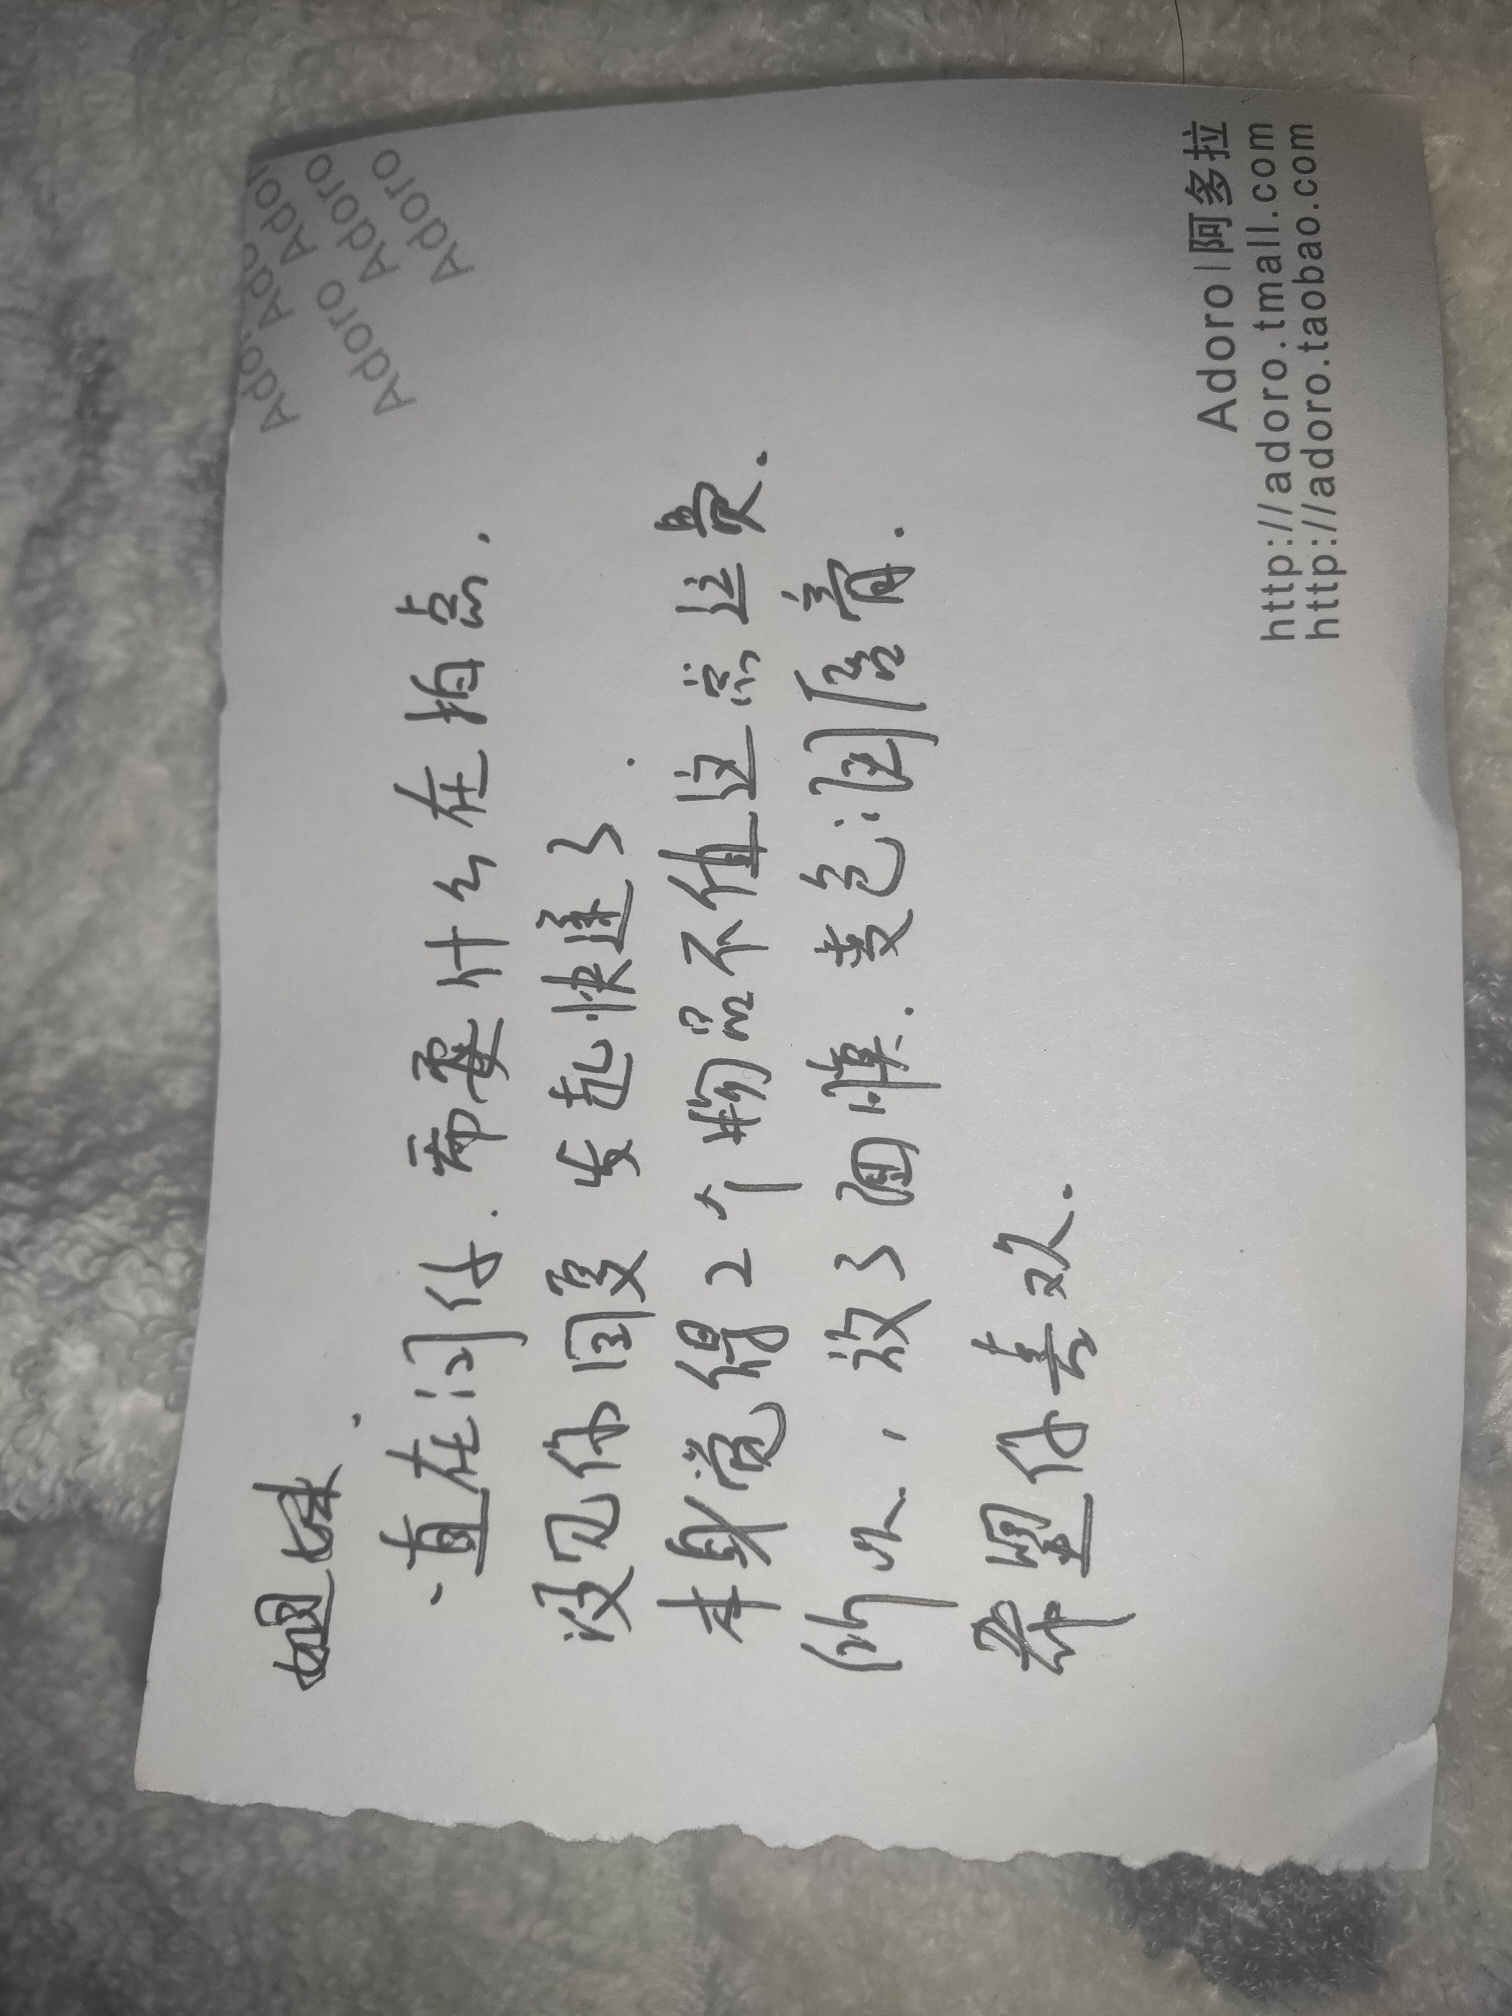 Adoro Adoro Adoro
Adoro Adoro
Adoro Adoro
姐妹.
一直在问你. 需要什么在拍点.
没见你回复 发起快递了.
本身觉得2个物品不值这点运费.
所以, 放了面膜. 变色润唇膏.
希望你喜欢.
Adoro|阿多拉
http://adoro.tmall.com
http://adoro.taobao.com